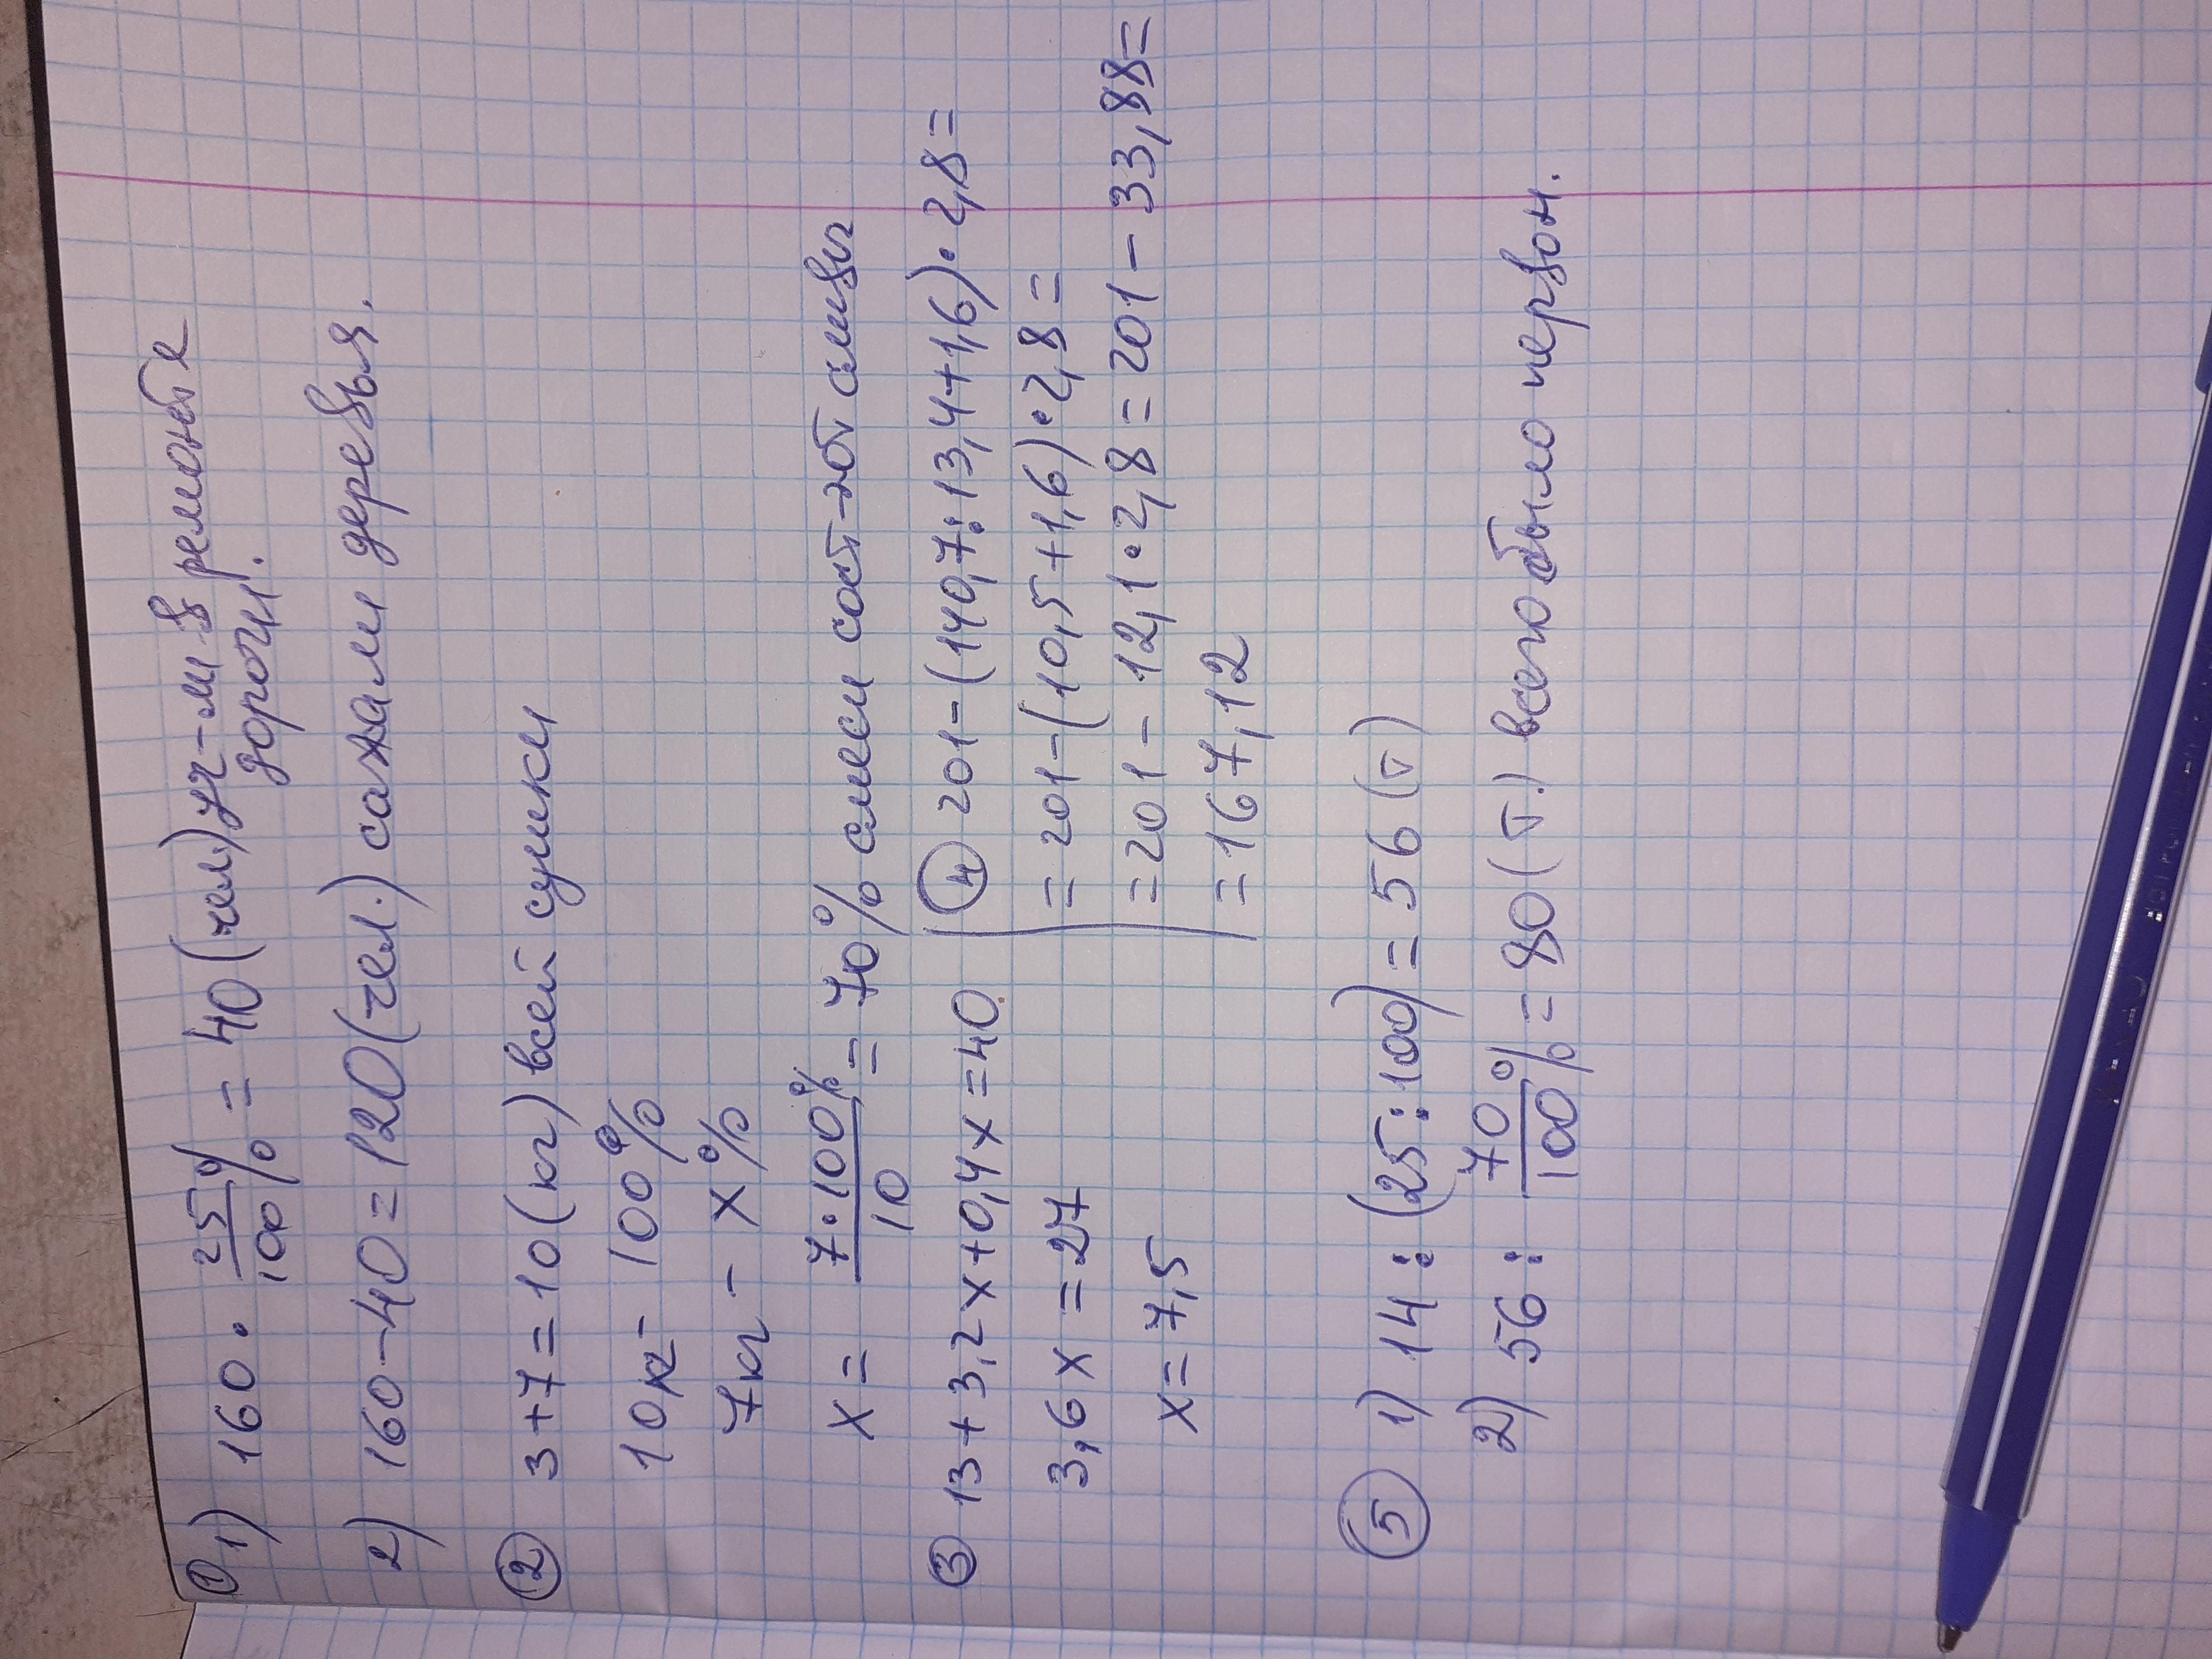 ① 1) 160 · 25%/100% = 40 (чел.) уч-ли в ремонте
дороги.
2) 160-40=120 (чел.) сажали деревья.
② 3+7=10 (кг) всей сушки
10кг- 100%
7кг - x%
x = 7·100%/10 = 70% смеси сост-ют сливы
③ 13+3,2x+0,4x=40
3,6x=27
x=7,5
④ 201-(140,7:13,4+1,6)·2,8=
=201-(10,5+1,6)·2,8=
=201-12,1·2,8=201-33,88=
=167,12
⑤ 1) 14:(25:100)=56 (т)
2) 56: 70/100% = 80 (т.) всего было первон.